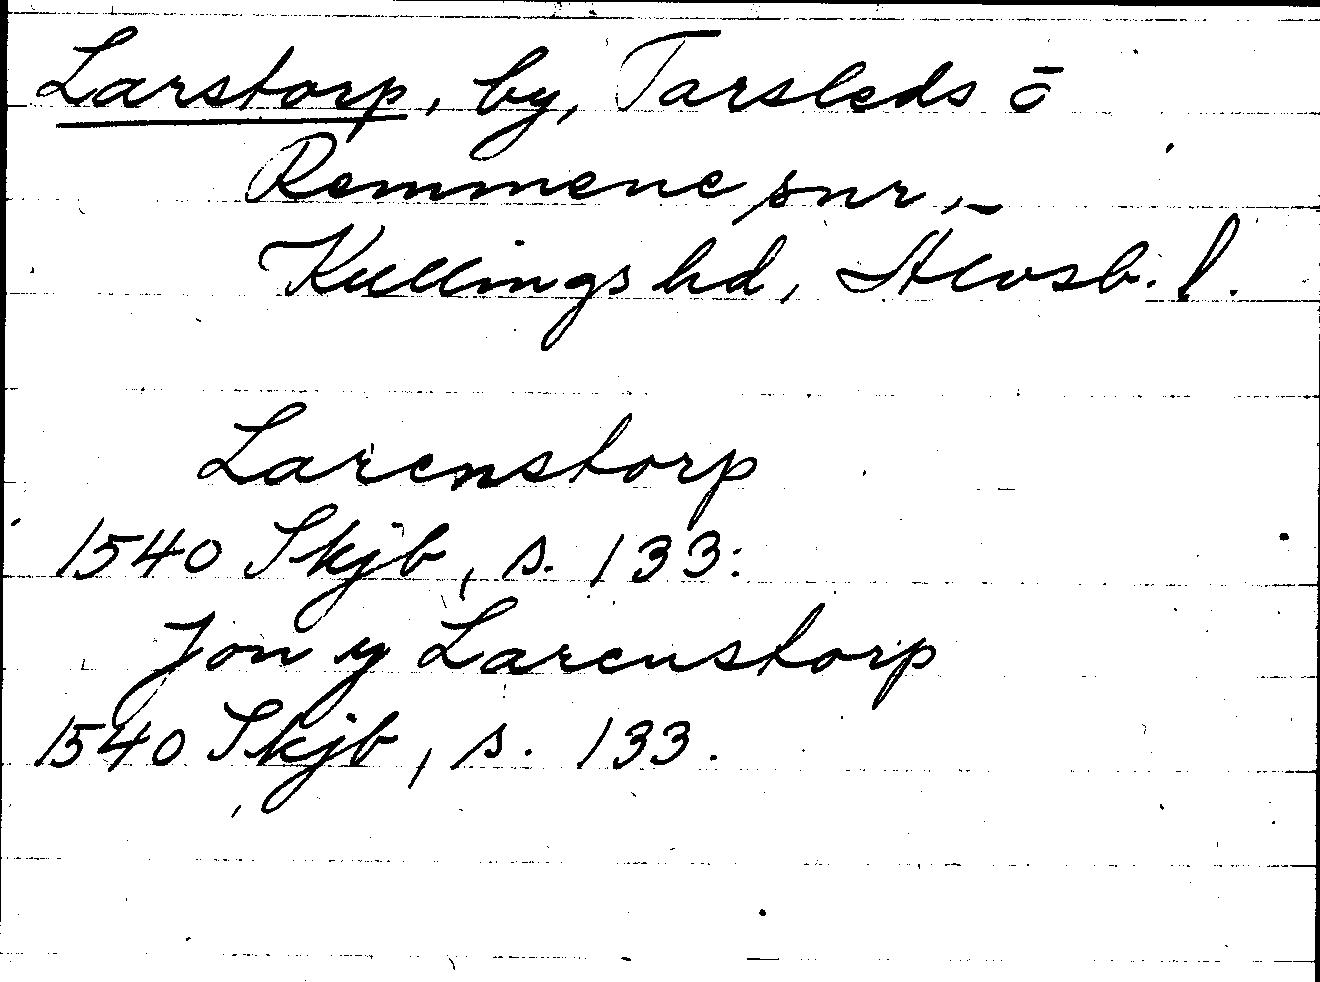 Larstorp, by, Tarsleds ō
Remmene snr,
Kullings hd, Älvsb. l.
Larenstorp
1540 Skjb, s. 133:
Jon y Larenstorp
1540 Skjb, s. 133.